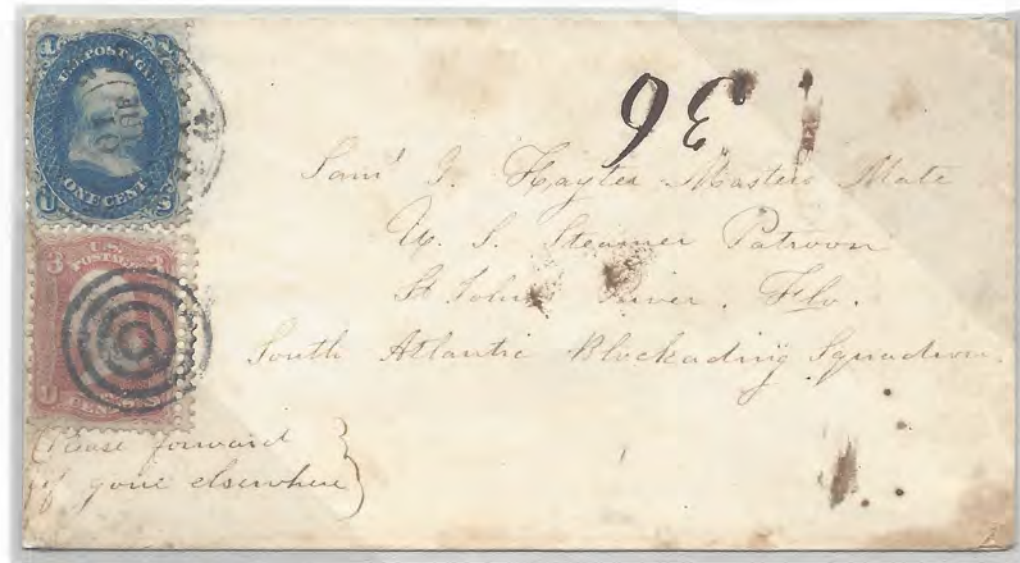 1
U.S. POSTAGE
ONE CENT
U S
10
3 3
U.S. POSTAGE
U
CENTS
36
Saml J. Hayter Masters Mate
U. S. Steamer Patroon
St Johns River. Flo.
South Atlantic Blockading Squadron.
(Please forward
if gone elsewhere)